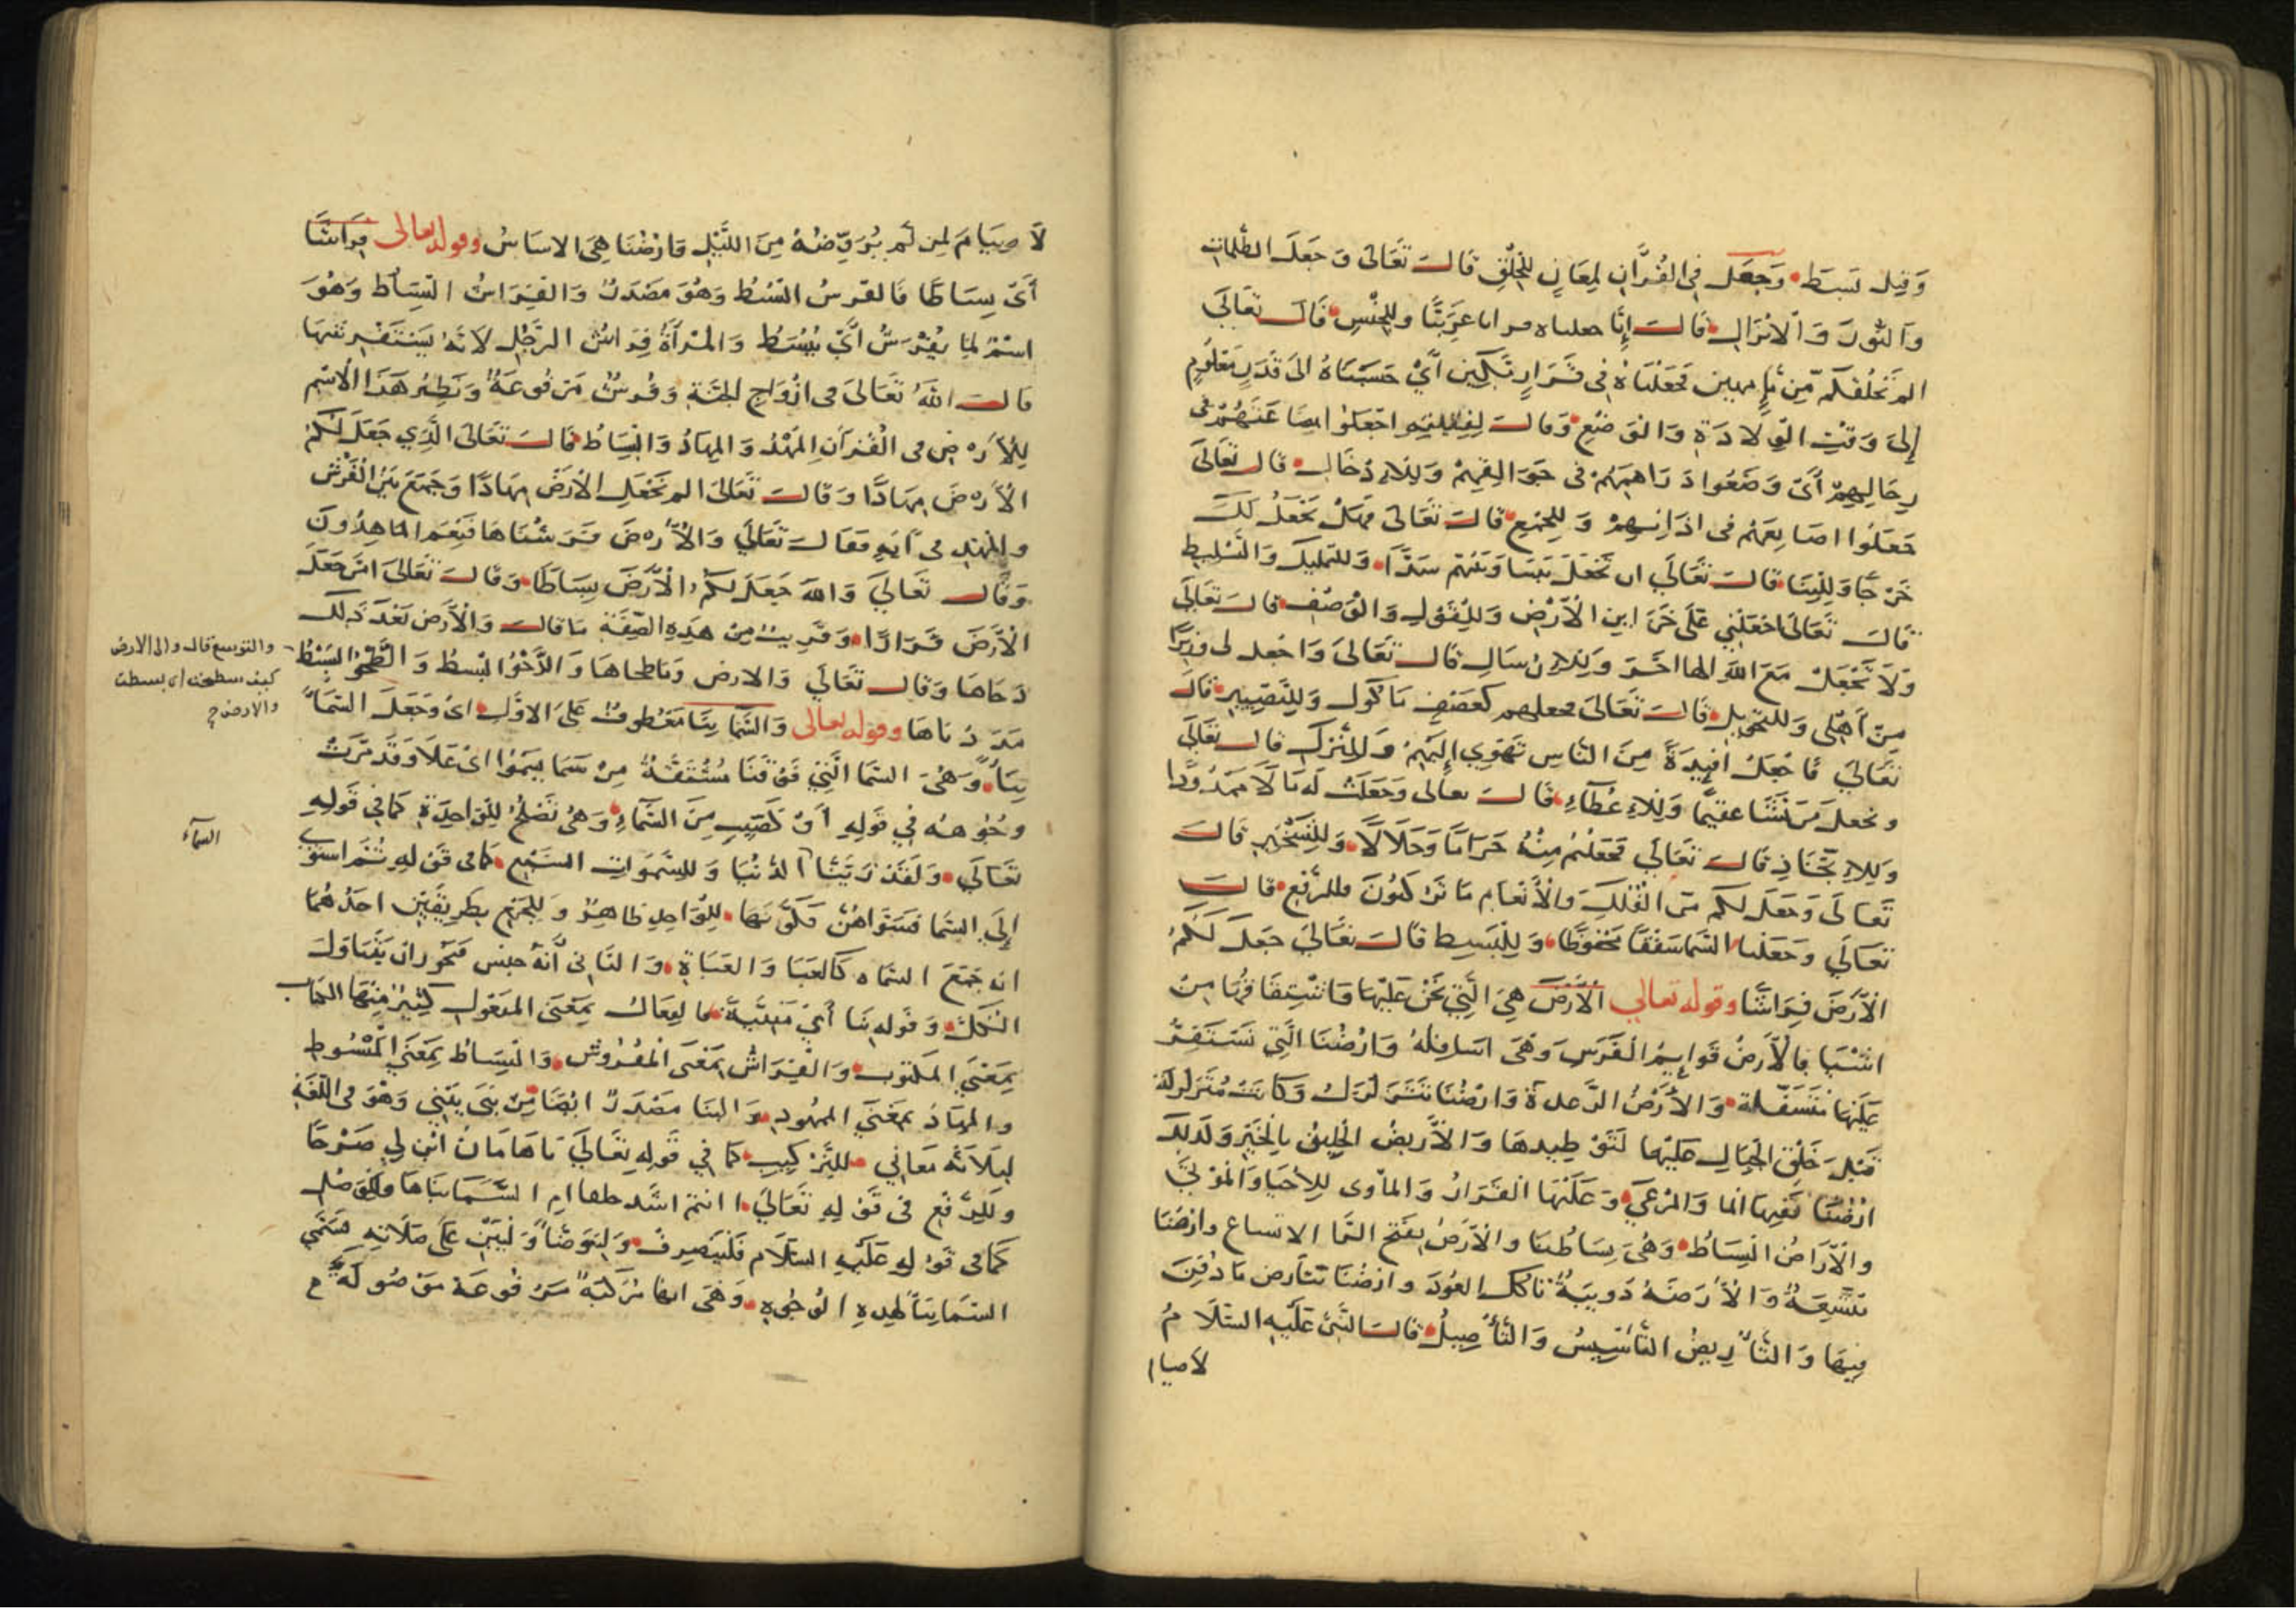 وَقِيلَ بَسَطَ وَجَعَلَ فِي القُرْآنِ لِمَعَانٍ لِلخَلْقِ قَالَ تَعَالَى وَجَعَلَ الظُّلُمَاتِ
وَالنُّورَ وَالْاِنْزَالِ قَالَ إِنَّا جعلناه قرانا عَرَبِيًّا وللحَبْسِ قَالَ تَعَالَى
الم نَخْلُقكُّم مِّن مَّاءٍ مهين فَجَعَلْنَاهُ فِي قَرَارٍ مَّكِينٍ أَيْ حَبَسْنَاهُ الى قَدَرٍ مَعْلُومٍ
إِلَى وَقْتِ الْوِلَادَةِ وَالوَضْعِ وَقَالَ لِفِتْيَانِهِ اجْعَلُوا بِضَاعَتَهُمْ فى
رِحَالِهِمْ أَىْ وَضَعُوا دَرَاهِمَهُمْ فى جَوَالِقِهِمْ وَلِلْاِدْخَالِ قال تَعَالَى
جَعَلُوا اصَابِعَهُمْ فى اذَانِهِمْ وَلِلجَمْعِ قَالَ تَعَالَى فَهَلْ نَجْعَلُ لَكَ
خَرْجًا وَلِلْبِنَا قَالَ تَعَالَى ان تَجْعَلَ بَيْنَنَا وَبَيْنَهُمْ سَدًّا وَللتمليك وَالتَّسْلِيطِ
قَالَ تَعَالَى اجْعَلْنِي عَلَى خَزَاينِ الْأَرْضِ وَلِلْقَوْلِ وَالْوَصْفِ قَالَ تَعَالَى
وَلَا تَجْعَلْ مَعَ اللهِ الها اخَرَ وَلِلْاِرْسَالِ قَالَ تَعَالَى وَاجْعَل لى وَزِيرًا
مِنْ أَهْلِى وَللتحْوِيلِ قَالَ تَعَالَى فجعلهم كَعَصْفٍ مَاكُولٍ وَلِلتَّصْيِيرِ قَالَ
تَعَالَى فَاجْعَلْ افْيِدَةً مِنَ النَّاسِ تَهْوِي إِلَيْهِمْ وَللتَّرْكِ قَالَ تَعَالَى
وَيجعل مَن يَشَا عقيمًا وَلِلاِعْطَاءِ قَالَ تعالى وَجَعَلْتُ لَهُ مَالًا مَمْدُودًا
وَلِلاِتِّخَاذِ قَالَ تَعَالَى فَجَعَلْتُمْ مِنْهُ حَرَامًا وَحَلَالًا وَلِلتَّسْخِيرِ قَالَ
تَعَالَى وَجَعَلَ لَكم مّن الفُلْكِ وَالْأَنْعَامِ مَا تَرْكَبُونَ وللرَّفْعِ قَالَ
تَعَالَى وَجَعَلْنا السَّمَا سَقْفًا مَحْفُوظًا وَلِلْبَسِيطِ قَالَ تَعَالَى جَعَلَ لَكُمُ
الْأَرْضَ فِرَاشًا وقوله تعالى الْأَرْضَ هِيَ الَّتِي نَحْنُ عَلَيْهَا وَاشْتِقَاقُهَا مِنْ
اشْيَا فَالْأَرْضُ قَوَايِمُ الْفَرَسِ وَهِيَ اسَافِلُهُ وَارْضُنَا الَّتِي نَسْتَقِرُّ
عَلَيْهَا مُتَسَفِّلَة وَالْأَرْضُ الرِّعدةُ وَارْضُنَا تَتَزَلْزَلُ وَكَانَتْ مُتَزَلْزِلَة
قَبْلَ خَلْقِ الْجِبَالِ عَلَيْهَا لِتَوْطِيدهَا وَالْأَرِيضُ الْخَلِيقُ بِالْخَيْرِ وَكَذلِكَ
ارْضُنَا فَفِيهَا الما وَالمَرْعَى وَعَلَيْهَا القَرَارُ وَالماْوى لِلْأحْيَا وَالمَوْتَى
والْأرَاضُ البِسَاطُ وَهْىَ بِسَاطُنَا والْأَرَضُ بِفَتْحِ الرَّا الاتساع وارْضُنَا
مُتَّسِعَةٌ وَالْأَرَضَةُ دُوَيْبَةٌ تَاكل العُودَ وارْضُنَا تتأرض مَا دُفِنَ
فِيهَا وَالتَّأْرِيضُ التَّأْسِيسُ وَالتَّأْصِيلُ قَالَ النَّبِيُّ عَلَيْهِ السَّلَامُ
لاصيام
لَا صِيَامَ لِمَنْ لَمْ يُؤَرِّضْهُ مِنَ اللَّيْلِ فَارْضُنَا هِيَ الاسَاسُ وقوله تعالى فِرَاشًا
أَىْ بِسَاطًا فَالفَرْسُ البَسْطُ وَهُوَ مَصْدَرٌ وَالفِرَاشُ البِسَاط وَهُوَ
اسْمٌ لِمَا يُفْرَشُ أَيْ يُبْسَطُ وَالمَرْأَةُ فِرَاشُ الرَّجُلِ لِانَّهُ يَسْتَفْرِشهَا
قَالَ اللهُ تَعَالَى فى ازْوَاجِ الجَنَّةِ وَفُرُشٍ مَرْفُوعَةٍ وَنَظِيرُ هَذَا الْاسْمِ
لِلْأَرْضِ فى الْقُرْآنِ المَهْدُ وَالمِهَادُ وَالبِسَاطُ قَالَ تَعَالَى الَّذِي جَعَلَ لَكُمُ
الْأَرْضَ مِهَادًا وَقَالَ تَعَالَى الم نَجْعَلِ الْأَرْضَ مِهَادًا وَجَمَعَ بَيْنَ الْفَرْشِ
والمَهْدِ فى آيَةٍ فقَالَ تَعَالَى وَالْأَرْضَ فَرَشْنَاهَا فَنِعْمَ المَاهِدُونَ
وَقَالَ تَعَالَى وَاللهُ جَعَلَ لَكُمُ الْأَرْضَ بِسَاطًا وَقَالَ تَعَالَى امَّن جَعَلَ
الْأَرْضَ قَرَارًا وَقَرِيبٌ مِنْ هَذِهِ الصِّفَةِ مَا قَالَ وَالْأَرْضَ بَعْدَ ذَلِكَ
دَحَاهَا وَقَالَ تَعَالَى وَالارضِ وَمَا طحَاهَا وَالدَّحْوُ البْسطُ وَالطَّحْوُ البَسْطُ
والتوسع قال والى الارض
كيف سطحت اى بسطت
والارض
مَدَدْنَاهَا وقوله تعالى وَالسَّمَا بِنَا مَعْطُوفٌ عَلَى الاوَّلِ اىْ وَجَعَلَ السَّمَا
بِنَاءً وَهْىَ السَّمَا الَّتِي فَوْقَنَا مُشْتَقَّةٌ مِنْ سَمَا يَسْمُوا اىْ عَلَا وَقَدْ مَرَّتْ
وُجُوهُهُ فِي قَوْلِهِ أَوْ كَصَيِّبٍ مِنَ السَّمَاءِ وَهْىَ تَصْلُحُ لِلْوَاحِدَةِ كَمَا فِي قَوْلِهِ
السمآء
تَعَالَى وَلَقَدْ زَيَّنَّا الدُّنْيَا وَلِلسَّمَوَاتِ السَّبْعِ كَمَا فى قَوْلِهِ ثُمَّ اسْتَوَى
إِلَى السَّمَا فَسَوَّاهُنَّ فَكَوْنُهَا لِلْوَاحِدِ ظَاهِرٌ وَلِلْجَمْعِ بِطَرِيقَيْنِ احَدُهُمَا
انه جَمْعُ السَّمَاه كَالعَبَا وَالعَبَاةِ وَالثَّانِى أَنَّهُ جِنس فَيَجُوزُ ان يَتَنَاوَلَ
الْكُلَّ وَقَوْلُهُ بِنَا أَيْ مَبْنِيَّةً فَالفِعَالُ بِمَعْنَى المَفْعُولِ كَثِيرٌ مِنْهَا الكِتَابُ
بِمَعْنَى المَكْتُوبِ وَالفِرَاشُ بِمَعْنَى الْمَفْرُوشِ وَالبِسَاطُ بِمَعْنَى الْمَبْسُوطِ
والمِهَادُ بِمَعْنَى المَمْهُودِ وَالبِنَا مَصْدَرٌ ايْضًا مِنْ بَنَى يَبْنِي وَهْوَ فى اللُّغَةِ
لِثَلَاثَةِ مَعَانِي للتَّرْكِيبِ كَمَا فِي قَوْلِهِ تَعَالَى يَا هَامَانُ ابْنِ لِي صَرْحًا
وَلِلرَّفْعِ فى قَوْلِهِ تَعَالَى اانتم اشَدّ خلقا امِ السَّمَا بَنَاهَا وَلِلوَصْلِ
كَمَا فى قَوْلِهِ عَلَيْهِ السَّلَام فَلْيَنْصَرِفْ وَلِيَتَوَضَّأ وَلْيَبْنِ عَلَى صَلَاتِهِ فَسَمَّى
السَّمَا بِنَا لِهَذِهِ الْوُجُوهِ وَهْىَ انها مُرَكَّبَة مَرْفُوعَة مَوْصُولَة